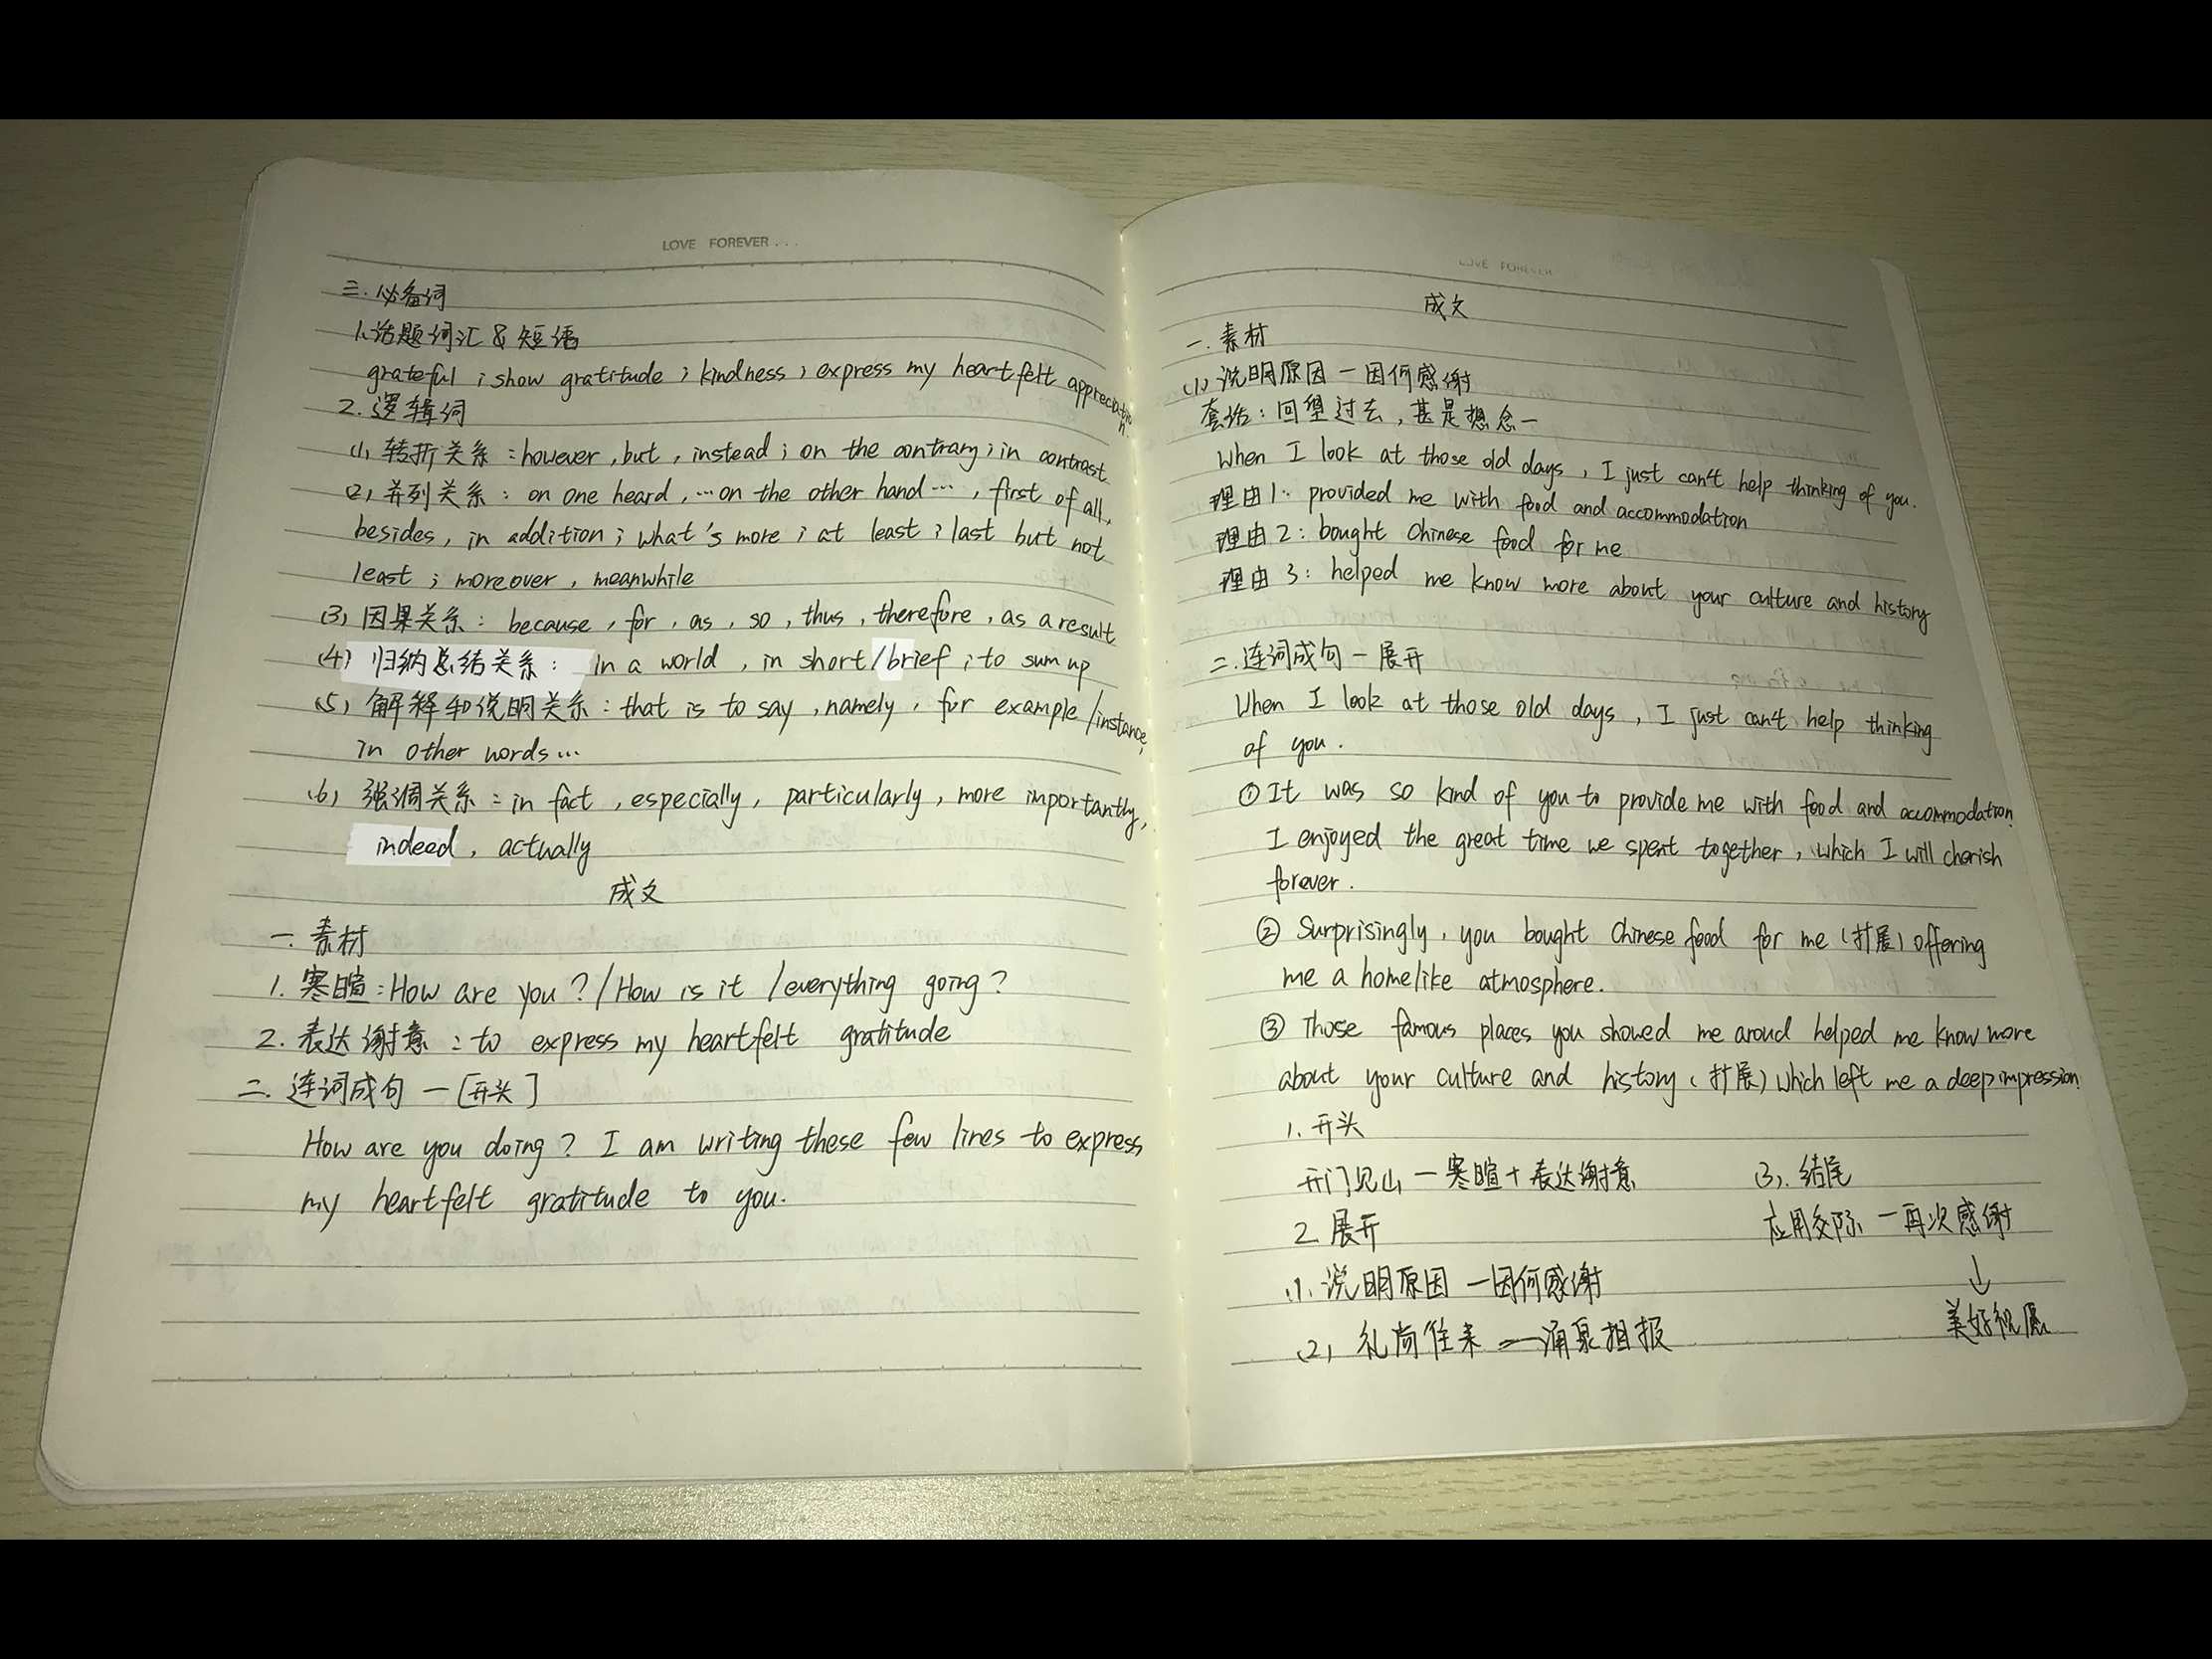 LOVE FOREVER...
三.必备词
1.话题词汇&短语
grateful ; show gratitude ; kindness ; express my heartfelt appreciation
2.逻辑词
(1) 转折关系:however, but, instead ; on the contrary ; in contrast
(2) 并列关系: on one heard, …on the other hand…, first of all,
besides, in addition ; what's more ; at least ; last but not
least ; moreover, meanwhile
(3) 因果关系: because, for, as, so, thus, therefore, as a result
(4) 归纳总结关系: in a world, in short/brief ; to sum up
(5) 解释和说明关系: that is to say, namely, for example/instance,
in other words…
(6) 强调关系:in fact, especially, particularly, more importantly,
indeed, actually
成文
一.素材
1. 寒暄:How are you?/How is it/everything going?
2. 表达谢意:to express my heartfelt gratitude
二.连词成句一[开头]
How are you doing? I am writing these few lines to express
my heartfelt gratitude to you.
LOVE FOREVER
成文
一.素材
(1) 说明原因一因何感谢
套话:回望过去,甚是想念一
When I look at those old days, I just can't help thinking of you.
理由1: provided me with food and accommodation
理由2: bought Chinese food for me
理由3: helped me know more about your culture and history
二.连词成句一展开
When I look at those old days, I just can't help thinking
of you.
① It was so kind of you to provide me with food and accommodation.
I enjoyed the great time we spent together, which I will cherish
forever.
② Surprisingly, you bought Chinese food for me (扩展) offering
me a homelike atmosphere.
③ Those famous places you showed me aroud helped me know more
about your culture and history (扩展) which left me a deep impression.
1. 开头
开门见山一寒暄+表达谢意
2. 展开
(1) 说明原因一因何感谢
(2) 礼尚往来一涌泉相报
(3). 结尾
应用交际一再次感谢
↓
美好祝愿